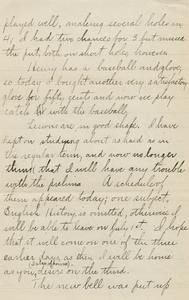 played well, making several holes in
4; I had two chances for 3 but missed
the put, both on short holes however.
Henry has a baseball and glove,
so today I bought another very satisfactory
glove for fifty cents and now we play
catch with the baseball.
Lessons are in good shape. I have
kept on studying about as hard as in
the regular term, and now no longer
think that I will have any trouble
with the prelims. A schedule of
them appeared today; one subject,
English History, is omitted, otherwise I
will be able to leave on July 1st. I hope
that it will come on one of the three
earlier days as then I will be home
as you desire on the third.
(schedule)
The new bell was put up